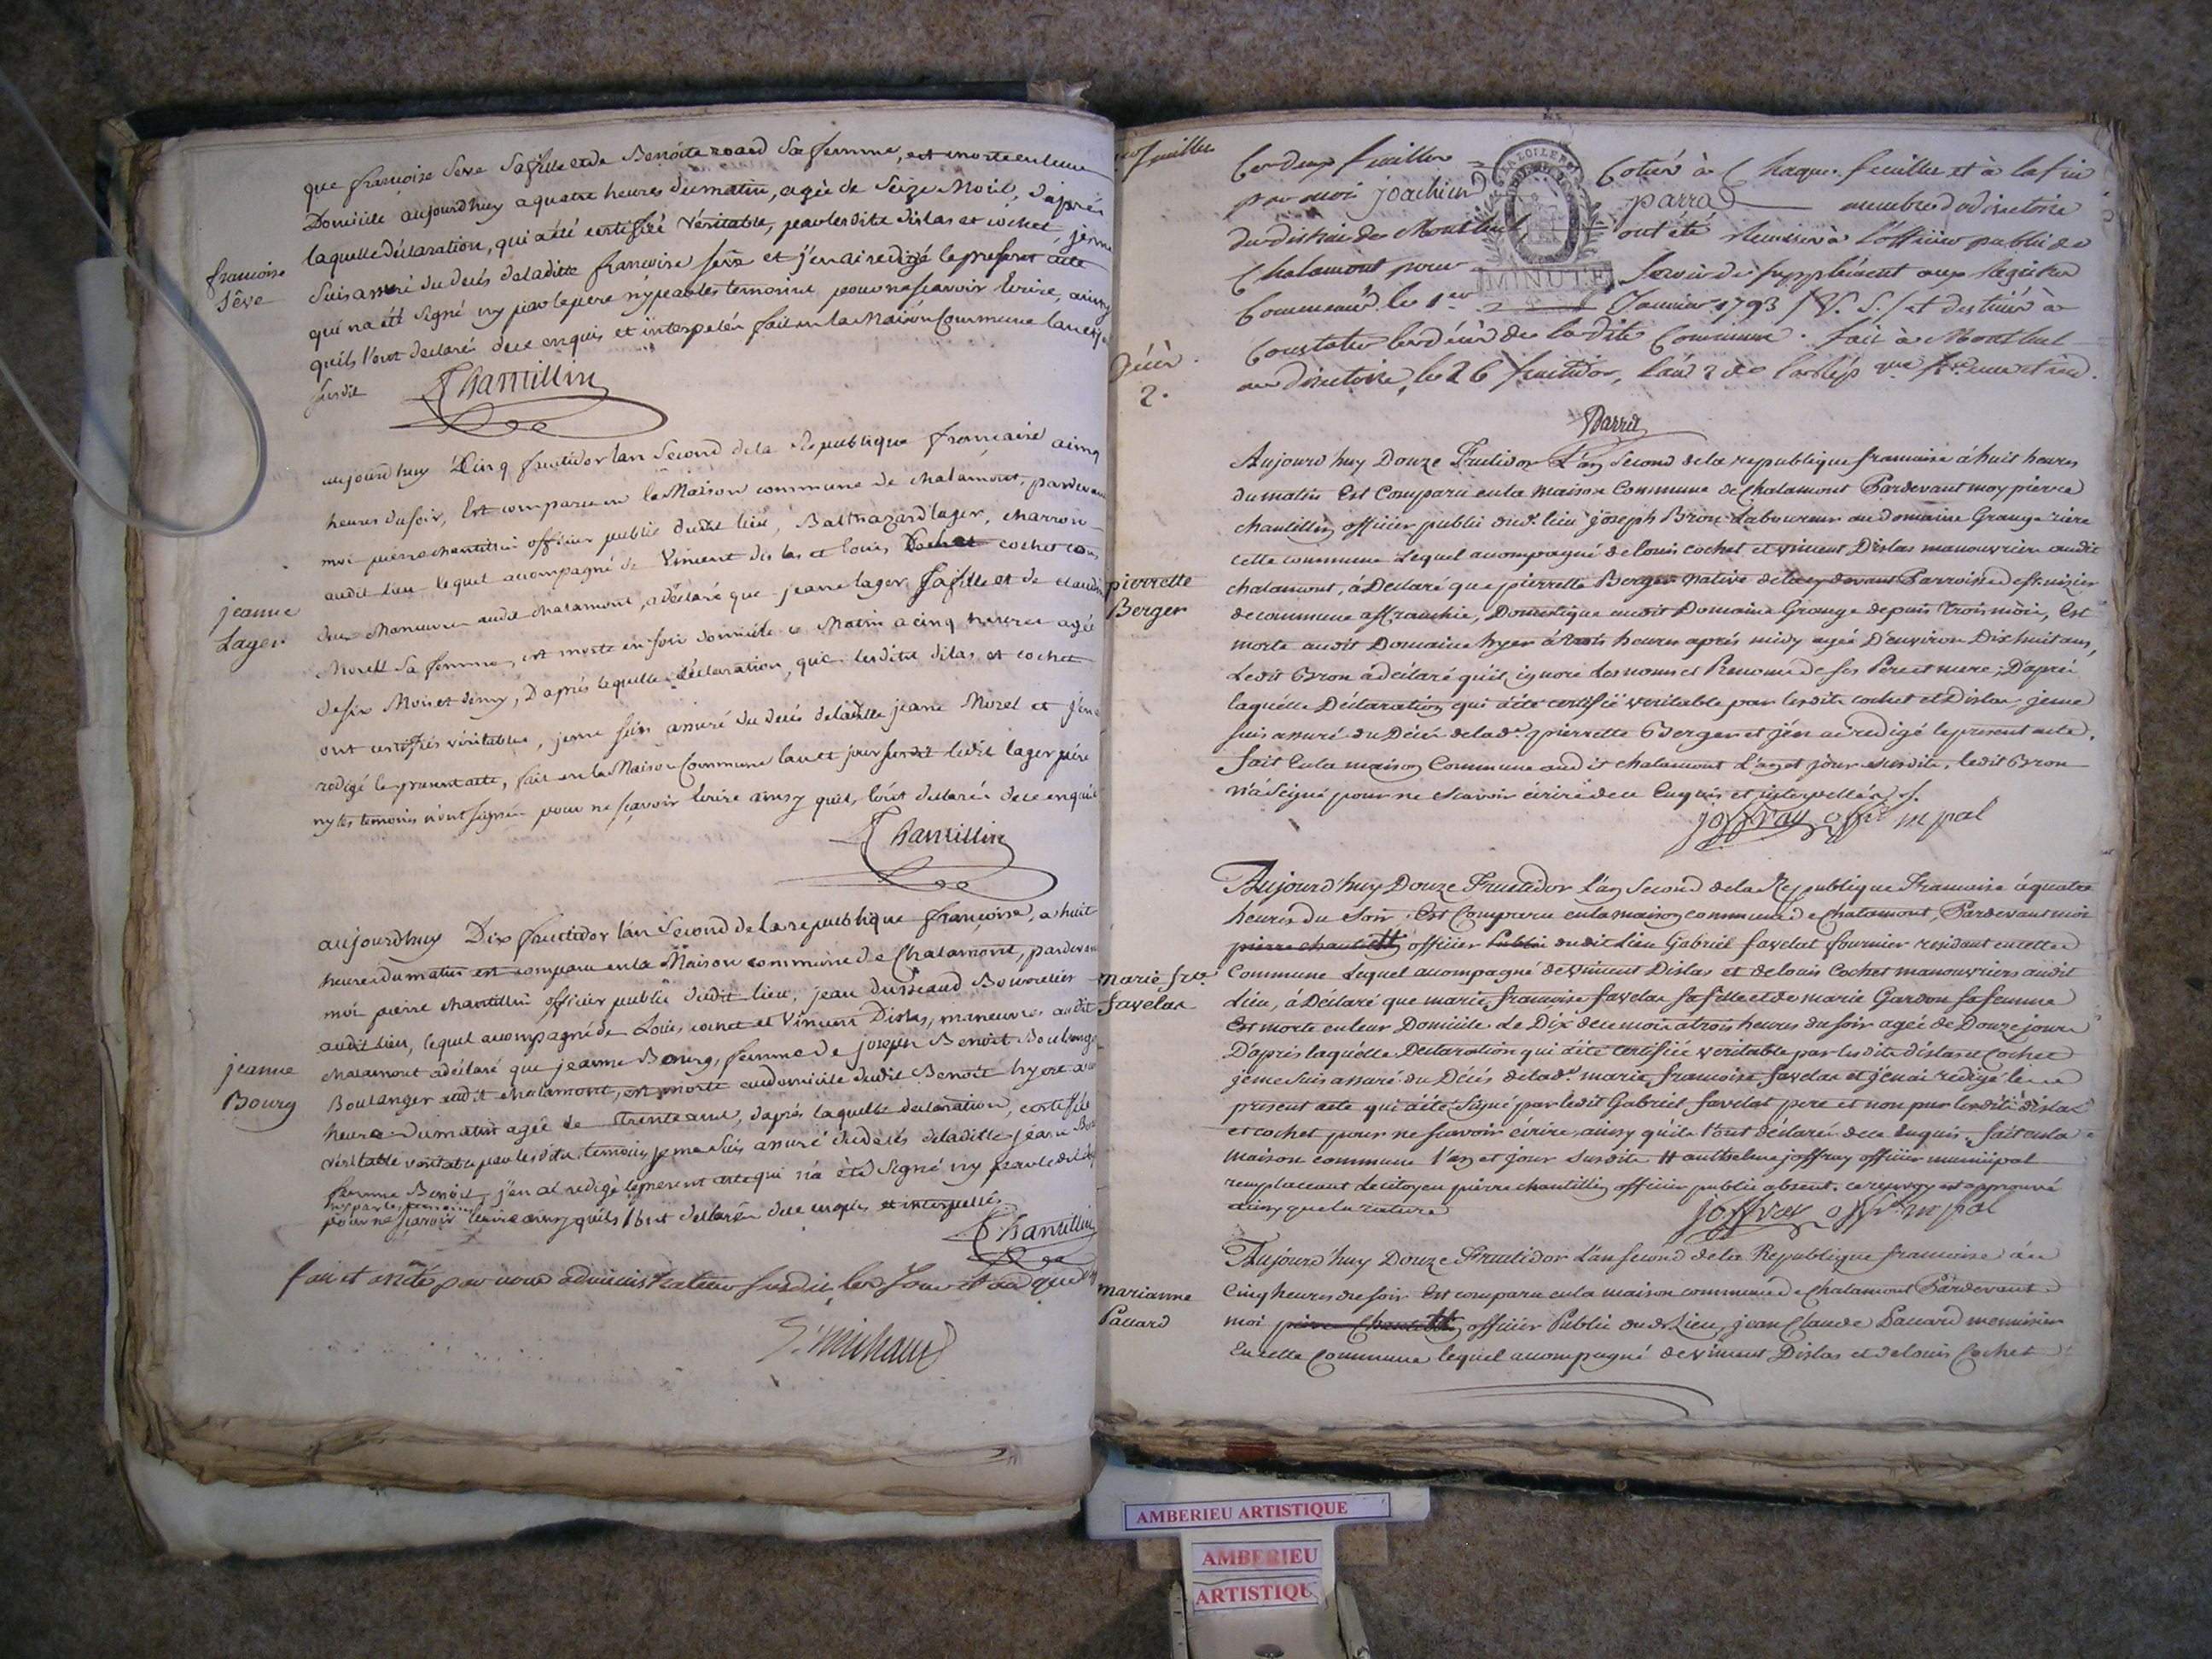 que francoise Seve Sa fille et de Benoite roard Sa femme, est morte en leur
Domicile aujourdhuy a quatre heures du matin, agée de Seize Mois, d'après
laquelle déclaration, qui a été certifiée véritable, par lesdits dislas et cochet, je me
francoise
Sêve
Suis assuré du decés de laditte francoise seve et j'en ai redigé le present acte
qui na été Signé ny par le pere ny par les temoins pour ne scavoir Ecrire, ainsy
quils l'ont declarés de ce enquis et interpelés fait en la Maison Commune lan et jour
susdit
Chantillin
aujourdhuy Cinq fructidor lan Second de la Republique francaise a cinq
heures du soir, Est comparu en la Maison commune de chalamont, pardevant
moi pierre chantillin officier public dudit lieu, Balthazard lager, charron
audit lieu lequel accompagné de Vincent dislas et louis cochet tous
deux Maneuvre audit chalamont, a déclaré que jeanne lager Sa fille et de claudine
jeanne
Lager
Morell Sa femme, est morte en son domicile ce Matin a cinq heures agée
de six Mois et demy, D'aprés laquelle déclaration, que lesdits dilas et cochet
ont certifiés véritables, je me suis assuré du decés de laditte jeanne Morel et j'en ai
redigé le present acte, fait en la Maison Commune lan et jour susdit ledit lager père
ny les temoins n'ont signés pour ne sçavoir Ecrire ainsy quils l'ont declarés de ce enquis
Chantillin
aujourdhuy Dix fructidor l'an Second de la republique françoise, a huit
heures du matin est comparu en la Maison commune de Chalamont, pardevant
moi pierre chantillin officier public dudit lieu, jean dusseaud Bourrelier
audit lieu, lequel accompagné de Louis cochet et Vincent Dislas, maneuvres audit
chalamont a déclaré que jeanne Bourg, femme de joseph Benoit Boulanger
jeanne
Bourg
Boulanger audit chalamont, est morte au domicile dudit Benoit hyer a
heure du matin agée de trente ans, d'aprés laquelle declaration, certifiée
véritable par lesdits temoins je me suis assuré du decés de laditte jeanne Bourg
femme Benoit j'en ai redigé le present acte qui n'a été Signé ny par le
ny par les temoins
pour ne sçavoir Ecrire ainsy quils l'ont declarés de ce enquis et interpellés
Chantillin
fait et arrêté par nous administrateur susdit les Jour et an que
Michaud
feuillet
Ces deux feuilles Cotées à Chaque feuille et à la fin
par moi joachim parra membre du directoire
du district de Montluel ont été remises à l'officier public de
Chalamont pour Servir de supplément aux registres
MINUTE
Commencés le 1er Janvier 1793 (V. S.) et destinés à
Décès
2.
Constater les décès de ladite Commune. fait à Montluel
au directoire, le 26 fructidor, l'an 2 de la Rep que fse une et ind.
Parra
Aujourd'huy Douze Fructidor L'an Second de la republique francaise à huit heures
du matin Est Comparu en la maison Commune de Chalamont Pardevant moy pierre
chantillin officier public dud. lieu joseph Bron Laboureur au domaine Grange rière
cette commune Lequel accompagné de louis cochet et vincent Dislas manouvriers audit
pierrette
Berger
chalamont, à Déclaré que pierrette Berger native de la cy devant Parroisse de st. nizier
de commune affranchie, Domestique audit Domaine Grange depuis trois mois, Est
morte audit Domaine hyer à trois heures après midy agée D'environ Dix huit ans,
Ledit Bron à déclaré qu'il ignore Les noms et Prenoms de ses Pere et mere; D'après
laquelle Déclaration qui a été certifié veritable par lesdits cochet et Dislas, je me
suis assuré du Décés de lad. pierrette Berger et j'en ai redigé le present acte.
fait En la maison Commune audit chalamont L'an et jour susdits, ledit Bron
n'a Signé pour ne Scavoir écrire de ce Enquis et interpellé
joffray offer mpal
Aujourd'huy Douze Fructidor L'an Second de la Republique Francoise à quatre
heures du Soir Est Comparu en la maison commune de Chalamont, Pardevant moi
pierre chantillin officier Public dudit Lieu Gabriel favelat fournier residant en cette
marie fse.
favelat
Commune Lequel accompagné de Vincent Dislas et de louis Cochet manouvriers audit
Lieu, à Déclaré que marie francoise favelat sa fille et de marie Gardon sa femme
Est morte en leur Domicile Le Dix de ce mois à trois heures du soir agée de Douze jours
D'après laquelle Declaration qui à été certifiée veritable par lesdits dislas et Cochet
je me suis assuré du Décés de lad. marie francoise favelat et j'en ai redigé le
present acte qui à été Signé par ledit Gabriel favelat pere et non par lesdits dislas
et cochet pour ne Scavoir écrire, ainsy qu'ils l'ont déclarés de ce Enquis fait en la
maison commune l'an et jour susdits # anthelme joffray officier municipal
remplacant le citoyen pierre chantillin officier public absent. ce renvoy est approuvé
ainsy que la rature
joffray offer mpal
Aujourd'huy Douze Fructidor L'an Second de la Republique francoise à
marianne
Paccard
Cinq heures du soir Est comparu en la maison commune de Chalamont Pardevant
moi pierre Chantillin officier Public dud. Lieu, jean Claude Paccard menuisier
En cette Commune lequel accompagné de Vincent Dislas et de louis Cochet
AMBERIEU ARTISTIQUE
AMBERIEU
ARTISTIQU